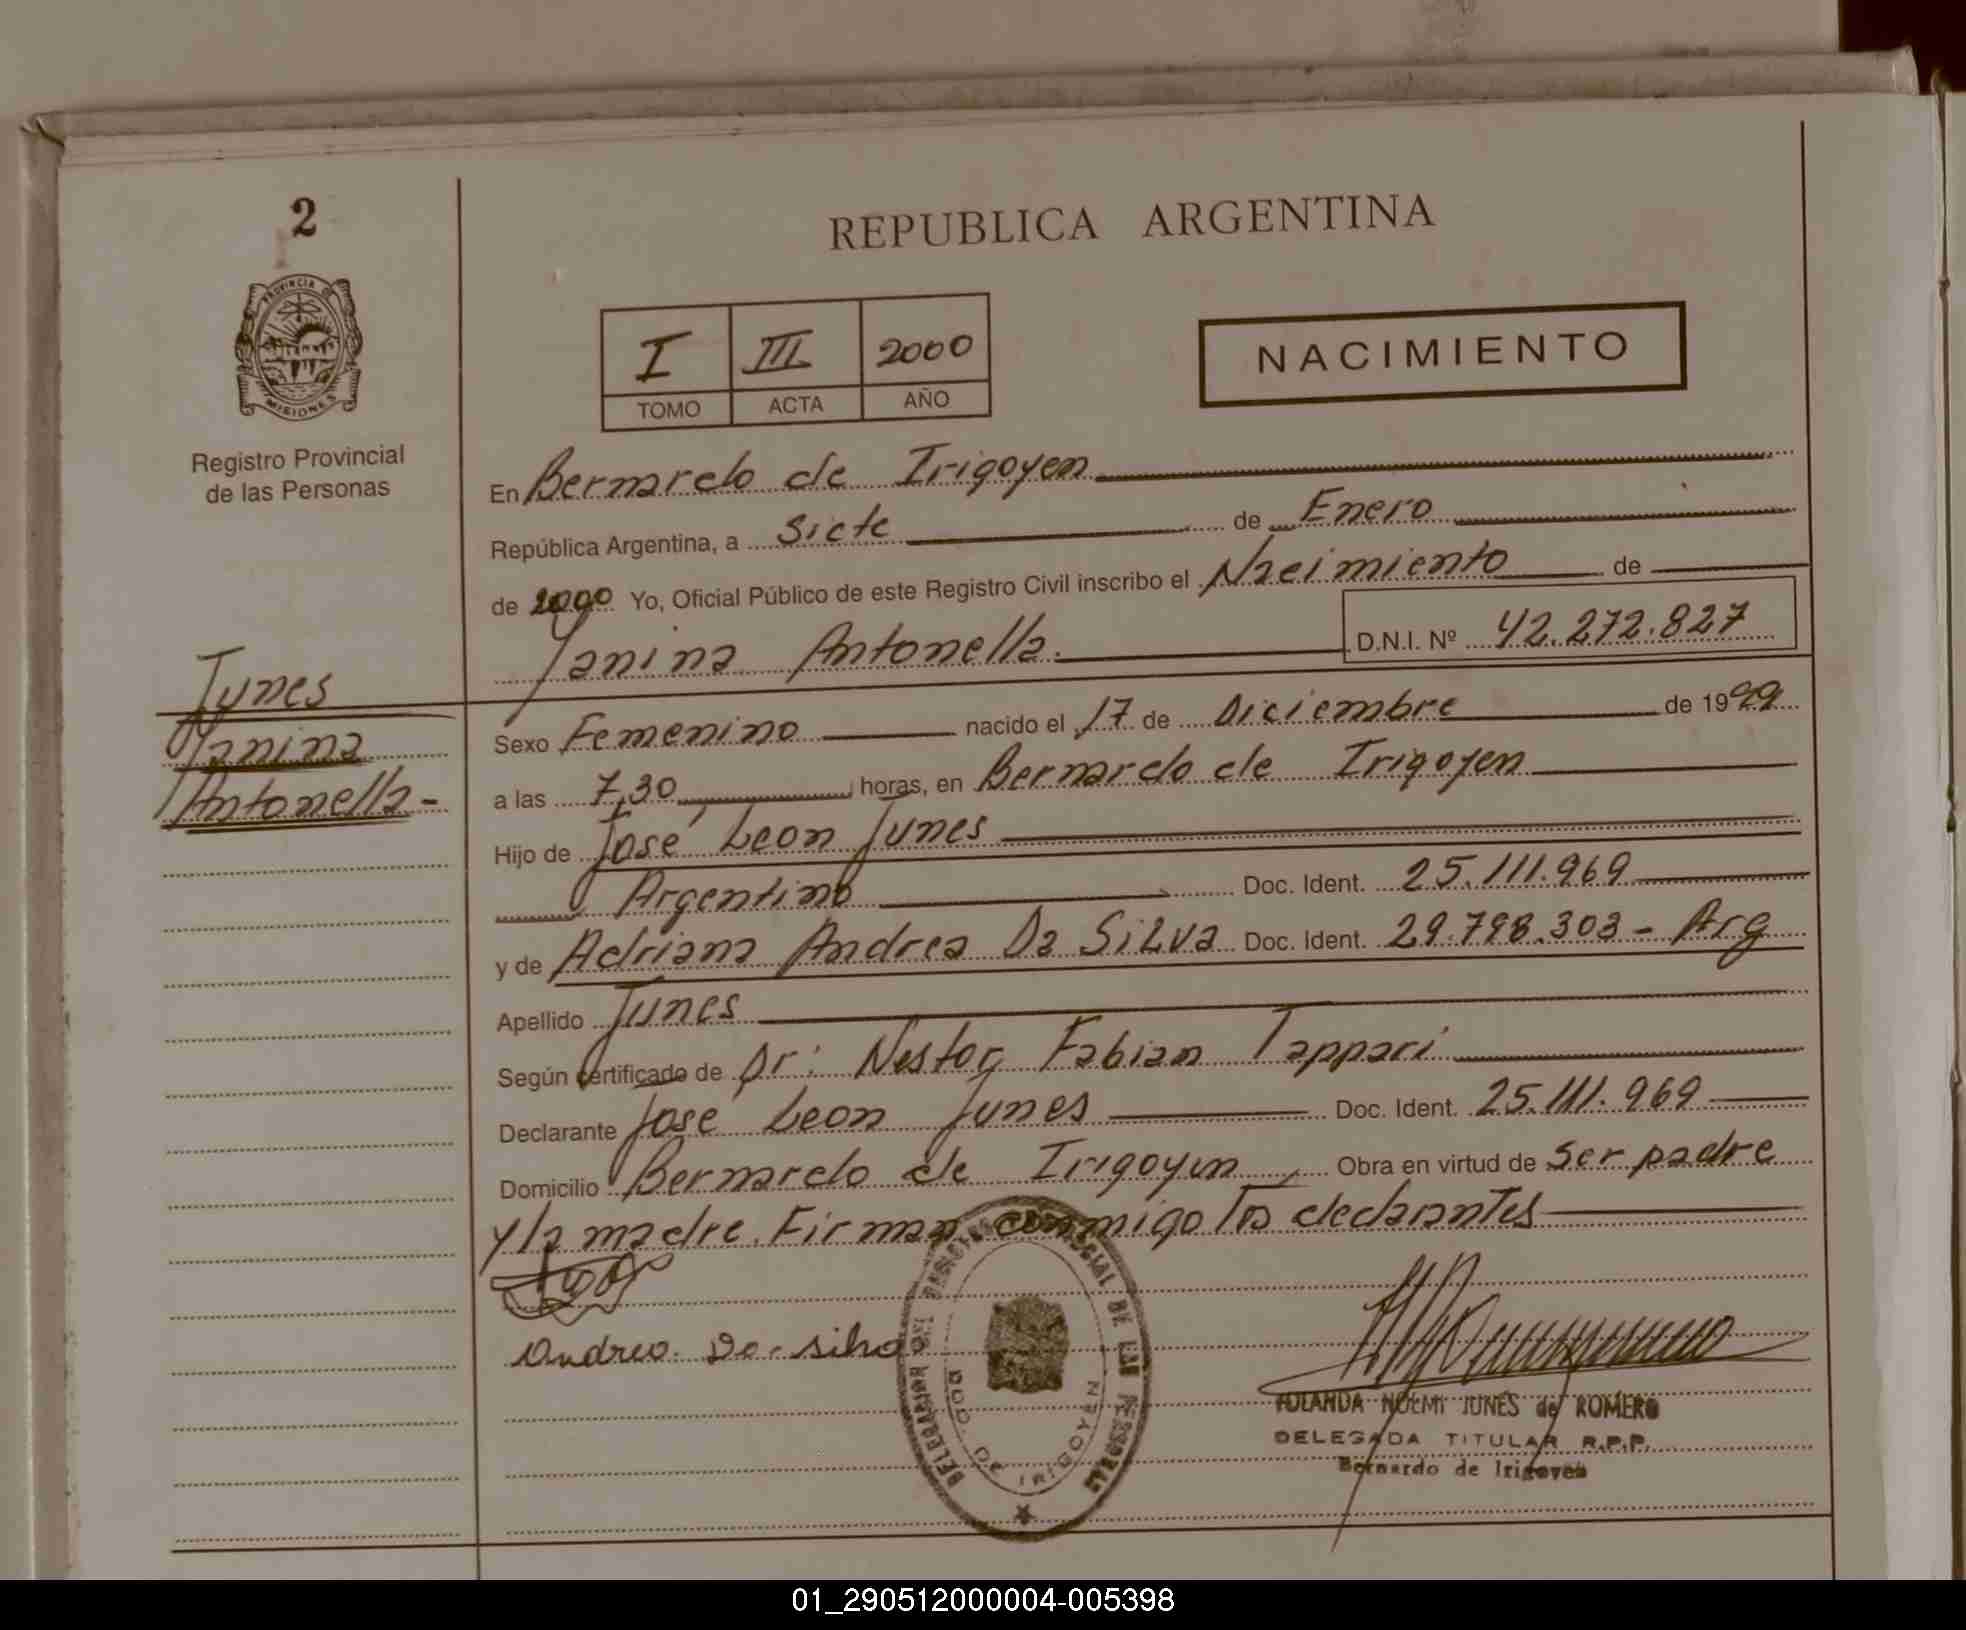 2
REPUBLICA ARGENTINA
PROVINCIA DE
MISIONES
Registro Provincial
de las Personas
I III 2000
TOMO ACTA AÑO
NACIMIENTO
En Bernardo de Irigoyen
República Argentina, a Siete de Enero
de 2000 Yo, Oficial Público de este Registro Civil inscribo el Nacimiento de
Yanina Antonella. D.N.I. Nº 42.272.827
Junes
Yanina
Antonella-
Sexo Femenino nacido el 17 de Diciembre de 1999
a las 7,30 horas, en Bernardo de Irigoyen
Hijo de José Leon Junes
Argentino Doc. Ident. 25.111.969
y de Adriana Andrea Da Silva Doc. Ident. 29.798.303 - Arg
Apellido Junes
Según certificado de Dr: Nestor Fabian Tappari
Declarante José Leon Junes Doc. Ident. 25.111.969
Domicilio Bernardo de Irigoyen Obra en virtud de ser padre
y la madre. Firman conmigo los declarantes
Andrea Da-silva
DELEGACION REGISTRO PROVINCIAL DE LAS PERSONAS
BDO. DE IRIGOYEN
YOLANDA NOEMI JUNES de ROMERO
DELEGADA TITULAR R.P.P.
Bernardo de Irigoyen
01_290512000004-005398